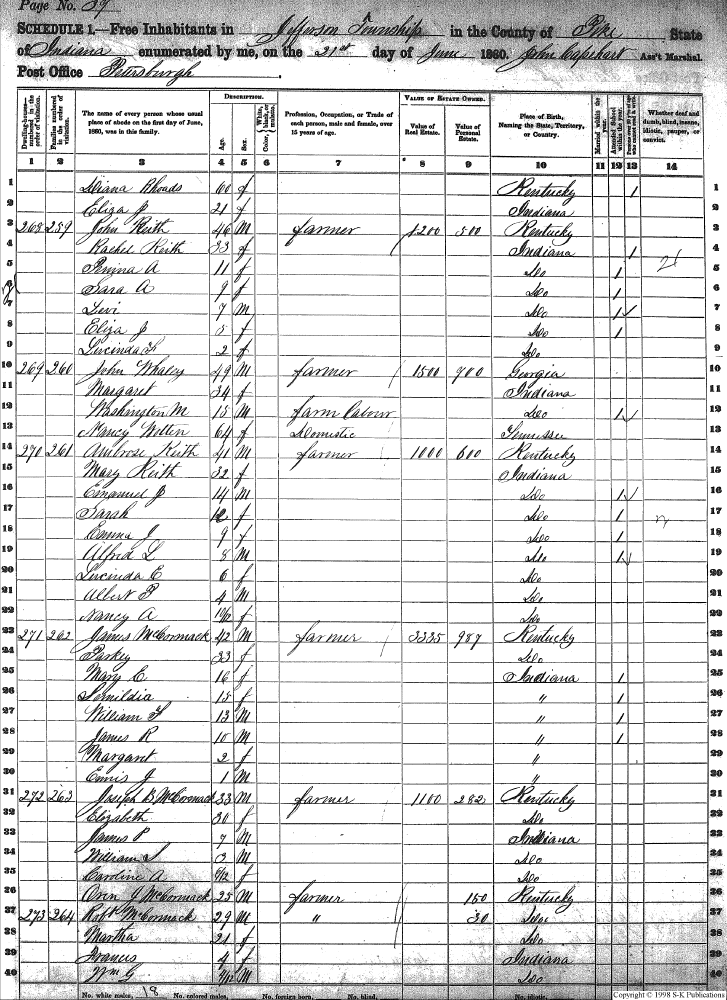 Page No. 39
SCHEDULE 1.—Free Inhabitants in Jefferson Township in the County of Pike State
of Indiana enumerated by me, on the 21st day of June 1860. John Capehart Ass't Marshal.
Post Office Petersburgh.
Dwelling-houses—numbered in the order of visitation.
Families numbered in the order of visitation.
The name of every person whose usual place of abode on the first day of June, 1860, was in this family.
DESCRIPTION.
Age.
Sex.
Color, White, black, or mulatto.
Profession, Occupation, or Trade of each person, male and female, over 15 years of age.
VALUE OF ESTATE OWNED.
Value of Real Estate.
Value of Personal Estate.
Place of Birth, Naming the State, Territory, or Country.
Married within the year.
Attended School within the year.
Whether deaf and dumb, blind, insane, idiotic, pauper, or convict.
1 2 3 4 5 6 7 8 9 10 11 12 13 14
1 Diana Rhoads 60 f Kentucky / 1
2 Eliza J 21 f Indiana 2
3 268 259 John Keith 46 M farmer 1200 500 Kentucky 3
4 Rachel Keith 33 f Indiana / 4
5 A 11 f Do / 5
6 Sara A 9 f Do / 6
7 Levi 7 M Do / 7
8 Eliza J 5 f Do / 8
9 Lucinda F 2 f Do 9
10 269 260 John Whaley 49 M farmer 1500 900 Georgia 10
11 Margaret 34 f Indiana 11
12 Washington M 15 M farm Labour Do / 12
13 Nancy 64 f Domestic Tennessee 13
14 270 261 Ambrose Keith 41 M farmer 1000 600 Kentucky 14
15 Mary Keith 32 f Indiana 15
16 Emanuel J 14 M Do / 16
17 Sarah 12 f Do / 17
18 Emma J 9 f Do / 18
19 Alfred L 8 M Do / 19
20 Lucinda E 6 f Do 20
21 Albert P 4 M Do 21
22 Nancy A 10/12 f Do 22
23 271 262 James McCormack 42 M farmer 3335 987 Kentucky 23
24 33 f Do 24
25 Mary E 16 f Indiana / 25
26 15 f " / 26
27 William F 13 M " / 27
28 James R 10 M " / 28
29 Margaret 2 f " 29
30 Ennis J 1 M " 30
31 272 263 Joseph B McCormack 33 M farmer 1100 282 Kentucky 31
32 Elizabeth 30 f Do 32
33 James P 7 M Indiana 33
34 William S 3 M Do 34
35 Caroline A f Do 35
36 J McCormack 25 M farmer 150 Kentucky 36
37 273 264 Robt McCormack 29 M " 30 Do 37
38 Martha 21 f Do 38
39 Frances 4 f Indiana 39
40 Wm G M Do 40
No. white males, 18 No. colored males, No. foreign born, No. blind, No. idiotic,
Copyright © 1998 S-K Publications